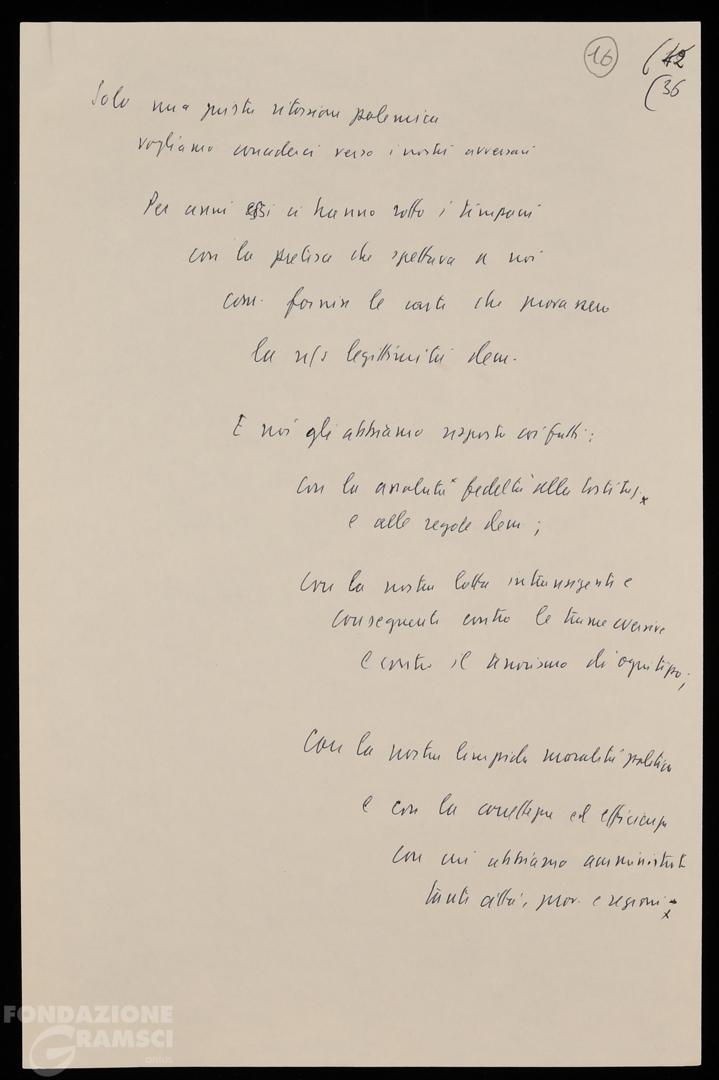 16
(12
(36
Solo una giusta ritorsione polemica
vogliamo concederci verso i nostri avversari
Per anni essi ci hanno rotto i timpani
con la pretesa che spettava a noi
com. fornire le carte che provassero
la n/s legittimità dem.
E noi gli abbiamo risposto coi fatti:
con la assoluta fedeltà alla Costituz.
e alle regole dem;
Con la nostra lotta intransigente e
conseguente contro le trame eversive
e contro il terrorismo di ogni tipo;
Con la nostra limpida moralità politica
e con la correttezza ed efficienza
con cui abbiamo amministrato
tante città, prov. e regioni
FONDAZIONE
GRAMSCI
onlus